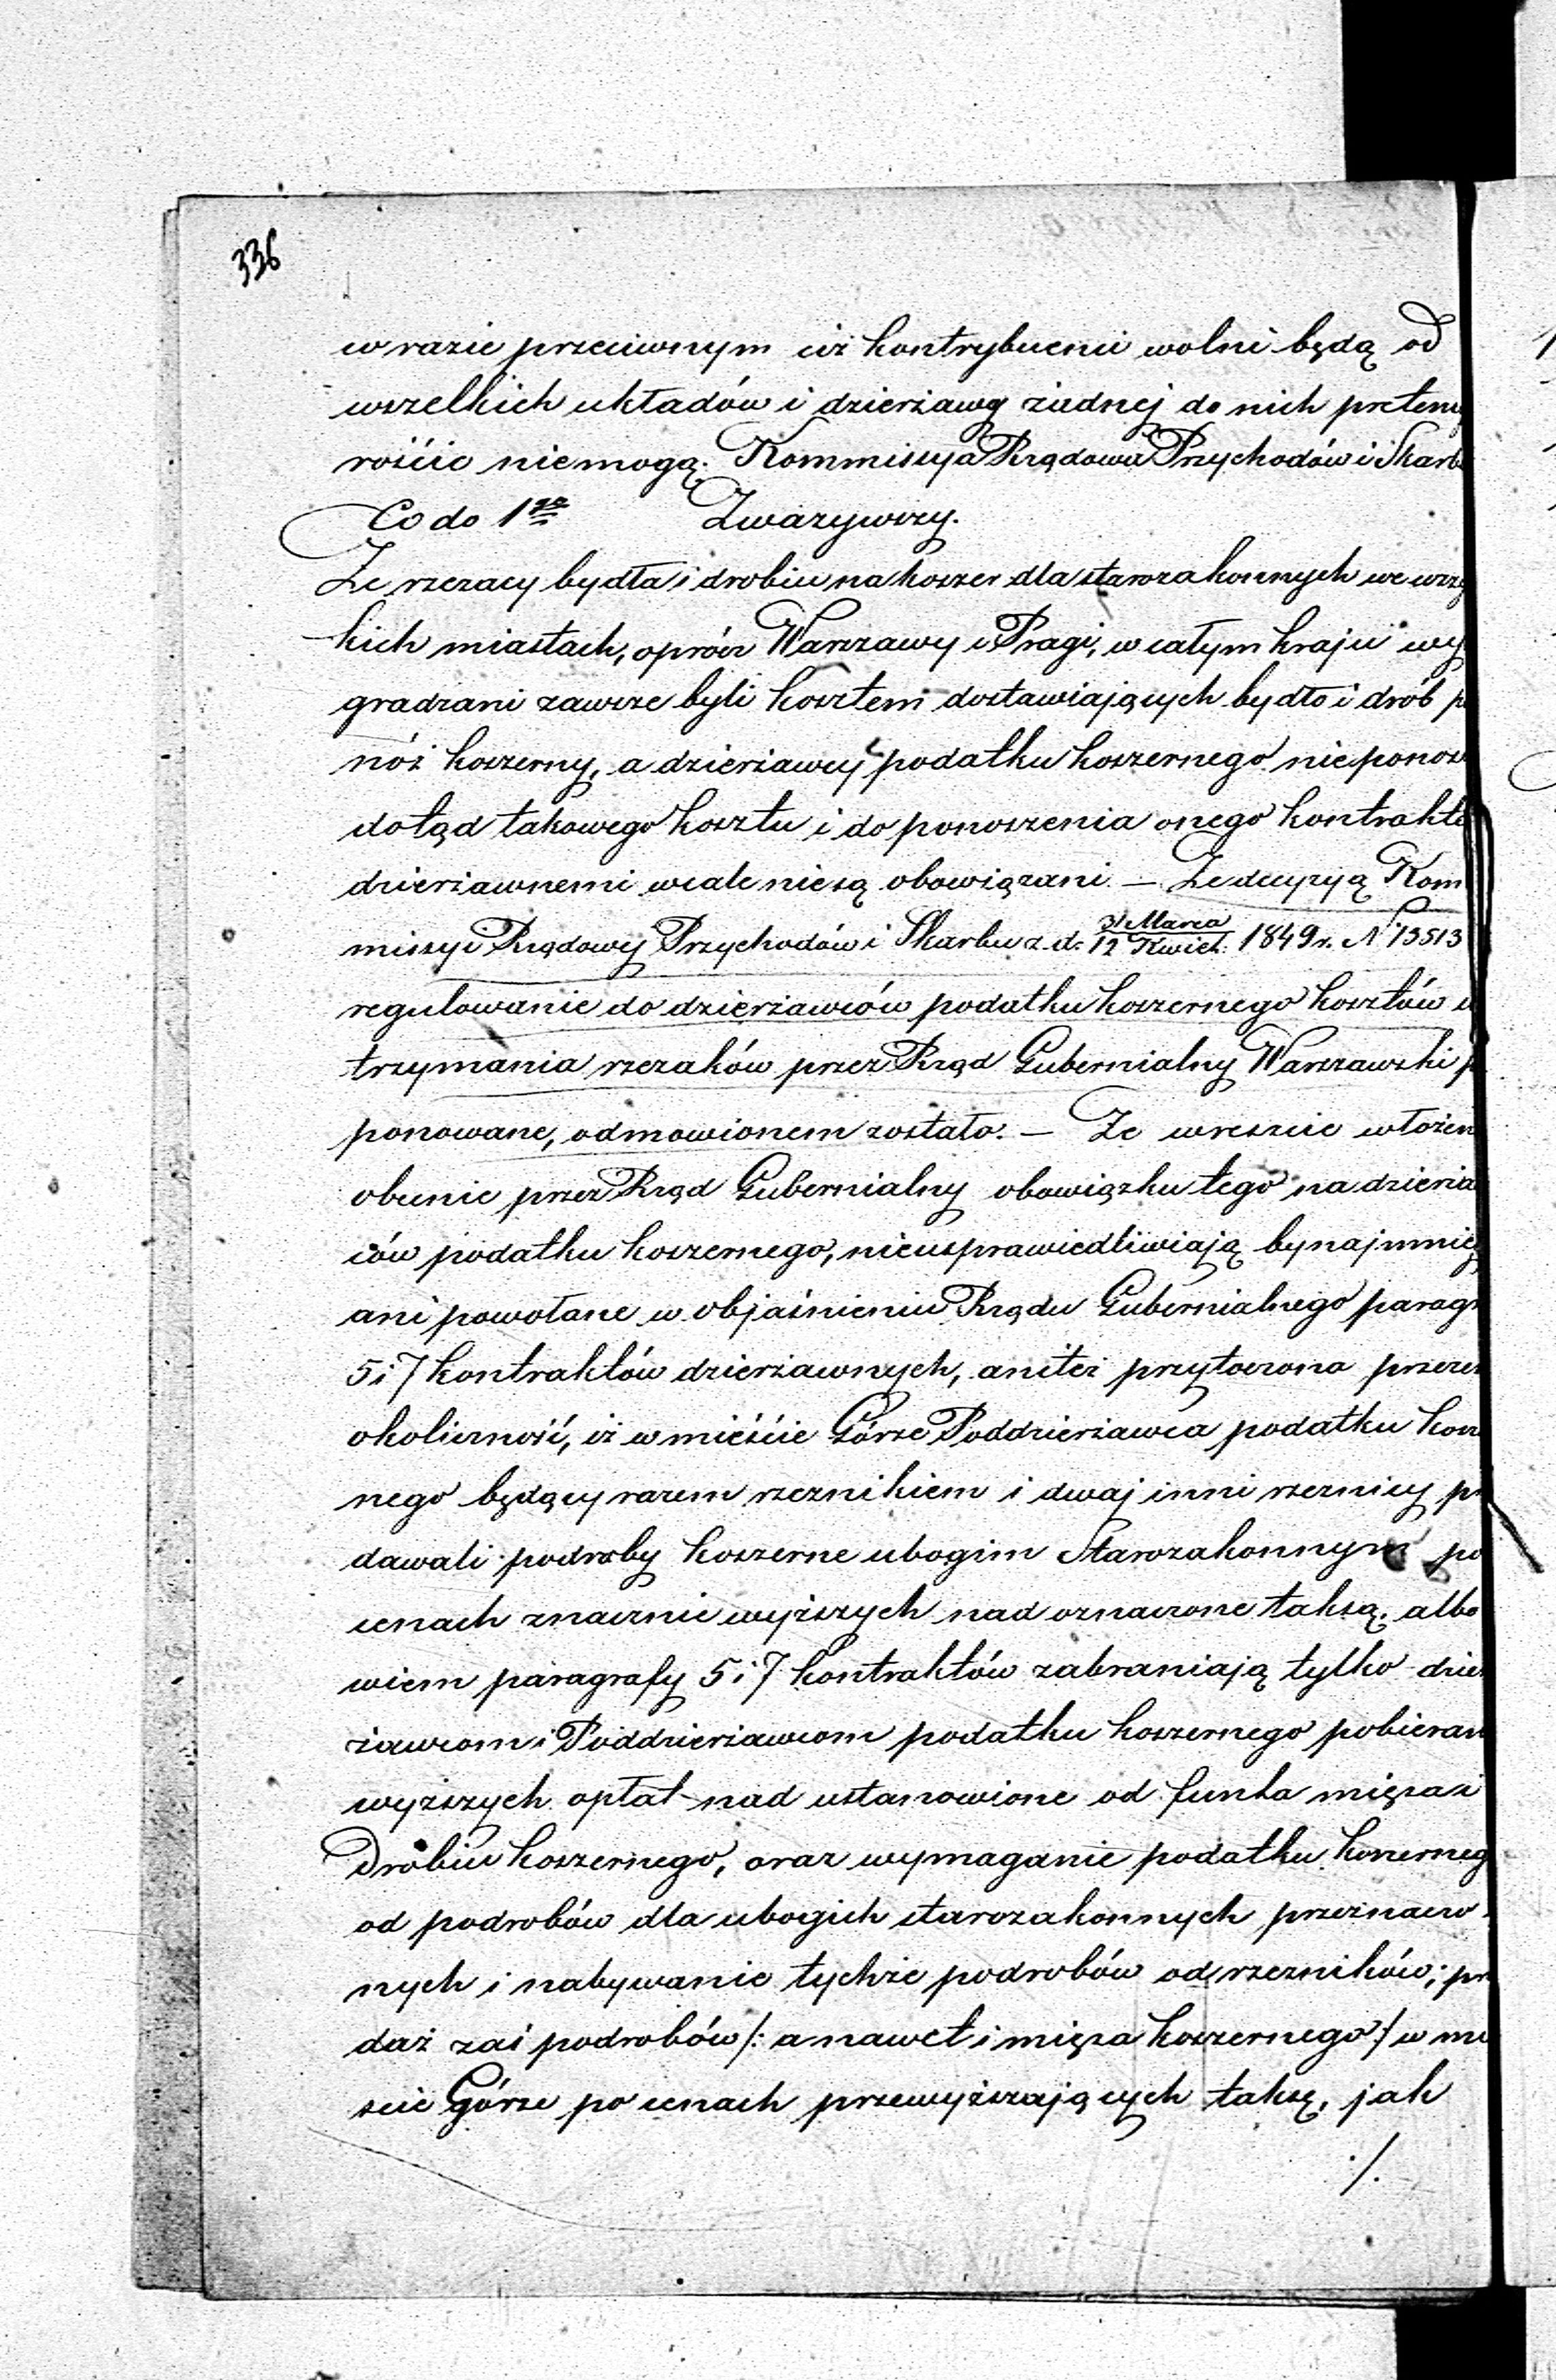 336
w razie przeciwnym ciż kontrybuenci wolni będą od
wszelkich układów i dzierżawy żadnej do nich pretens
rościć niemogą. Kommissya Rządowa Przychodów i Skarb
Co do 1go Zważywszy.
Że rzezacy bydła i drobiu na koszer dla starozakonnych we wszy
kich miastach, oprócz Warszawy i Pragi, w całym kraju wy
gradzani zawsze byli kosztem dostawiających bydło i drób p
nóż koszerny, a dzierżawcy podatku koszernego nieponos
dotąd takowego kosztu i do ponoszenia onego kontrakta
dzierżawnemi wcale niesą obowiązani. — Że decyzyą Kom
missyi Rządowej Przychodów i Skarbu z d. 31 Marca / 12 Kwiet. 1849 r. N 13513
regulowanie do dzierżawców podatku koszernego kosztów u
trzymania rzezaków przez Rząd Gubernialny Warszawski p
ponowane, odmowionem zostało. — Że wreszcie włożen
obecnie przez Rząd Gubernialny obowiązku tego na dzierża
ców podatku koszernego, nieusprawiedliwiają bynajmniej
ani powołane w objaśnieniu Rządu Gubernialnego paragr
5 i 7 kontraktów dzierżawnych, anitéż przytoczona przezeń
okoliczność, iż w mieście Górze Poddzierżawca podatku kosz
nego będący razem rzeznikiem i dwaj inni rzeznicy pr
dawali podroby koszerne ubogim Starozakonnym po
cenach znacznie wyższych nad oznaczone taksą. albo
wiem paragrafy 5 i 7 kontraktów zabraniają tylko dzier
żawcom i Poddzierżawcom podatku koszernego pobieran
wyższych opłat nad ustanowione od funta mięsa i
Drobiu koszernego, oraz wymaganie podatku koszerneg
od podrobów dla ubogich starozakonnych przeznaczo-
nych i nabywanie tychże podrobów od rzezników; prz
daż zaś podrobów /: a nawet i mięsa koszernego :/ w mie
ście Górze po cenach przewyższających taksę, jak
./.